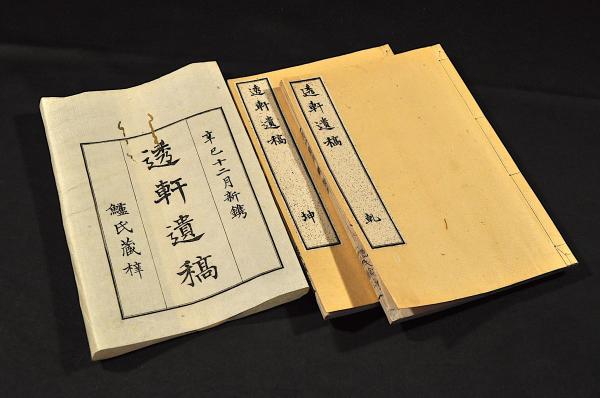 辛巳十二月新鐫
透軒遺稿
鱸氏藏梓
透軒遺稿
坤
透軒遺稿
乾